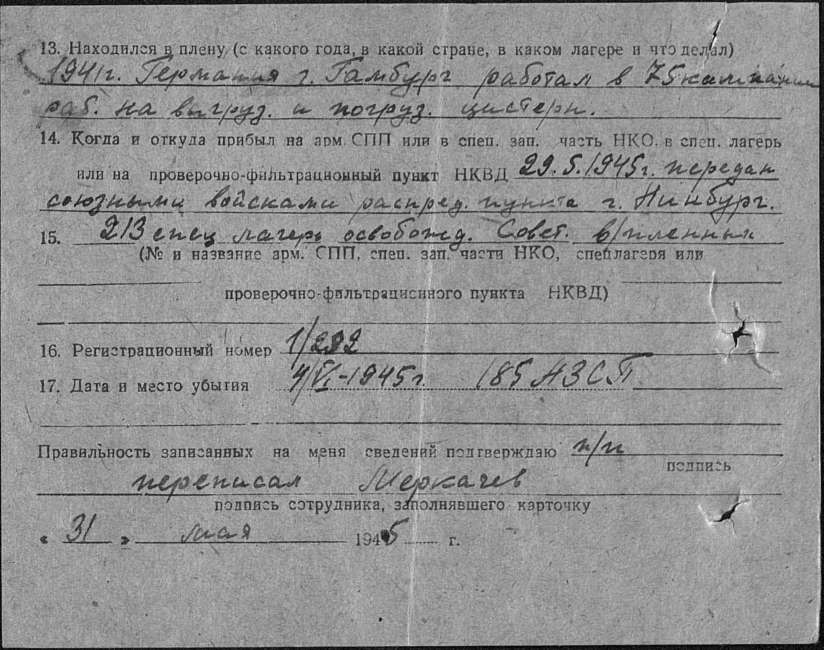 13. Находился в плену (с какого года, в какой стране, в каком лагере и что делал)
1941г. Германия г. Гамбург работал в 75 кампании
раб. на выгруз. и погруз. цистерн.
14. Когда и откуда прибыл на арм. СПП или в спец. зап. часть НКО, в спец. лагерь
или на проверочно-фильтрационный пункт НКВД 29.5.1945г. передан
союзными войсками распред. пункта г. Нинбург.
15. 213 спец лагерь освобожд. Совет. в/пленных
(№ и название арм. СПП, спец. зап. части НКО, спецлагеря или
проверочно-фильтрационного пункта НКВД)
16. Регистрационный номер 1/292
17. Дата и место убытия 4/VI-1945г. 185 АЗСП
Правильность записанных на меня сведений подтверждаю п/п
подпись
переписал Меркачев
подпись сотрудника, заполнявшего карточку
« 31 » мая 1945 г.